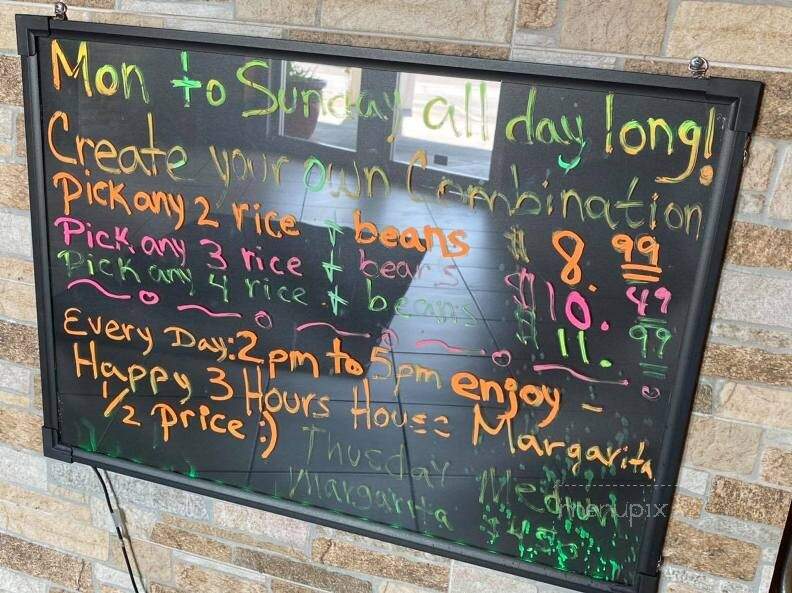 Mon to Sunday all day long!
Create your own Combination
Pick any 2 rice + beans $ 8.99
Pick any 3 rice + beans $10.49
Pick any 4 rice + beans $ 11.99
Every Day: 2pm to 5pm enjoy -
Happy 3 Hours House Margarita
1/2 Price :)
Thusday Medium
Margarita
menupix